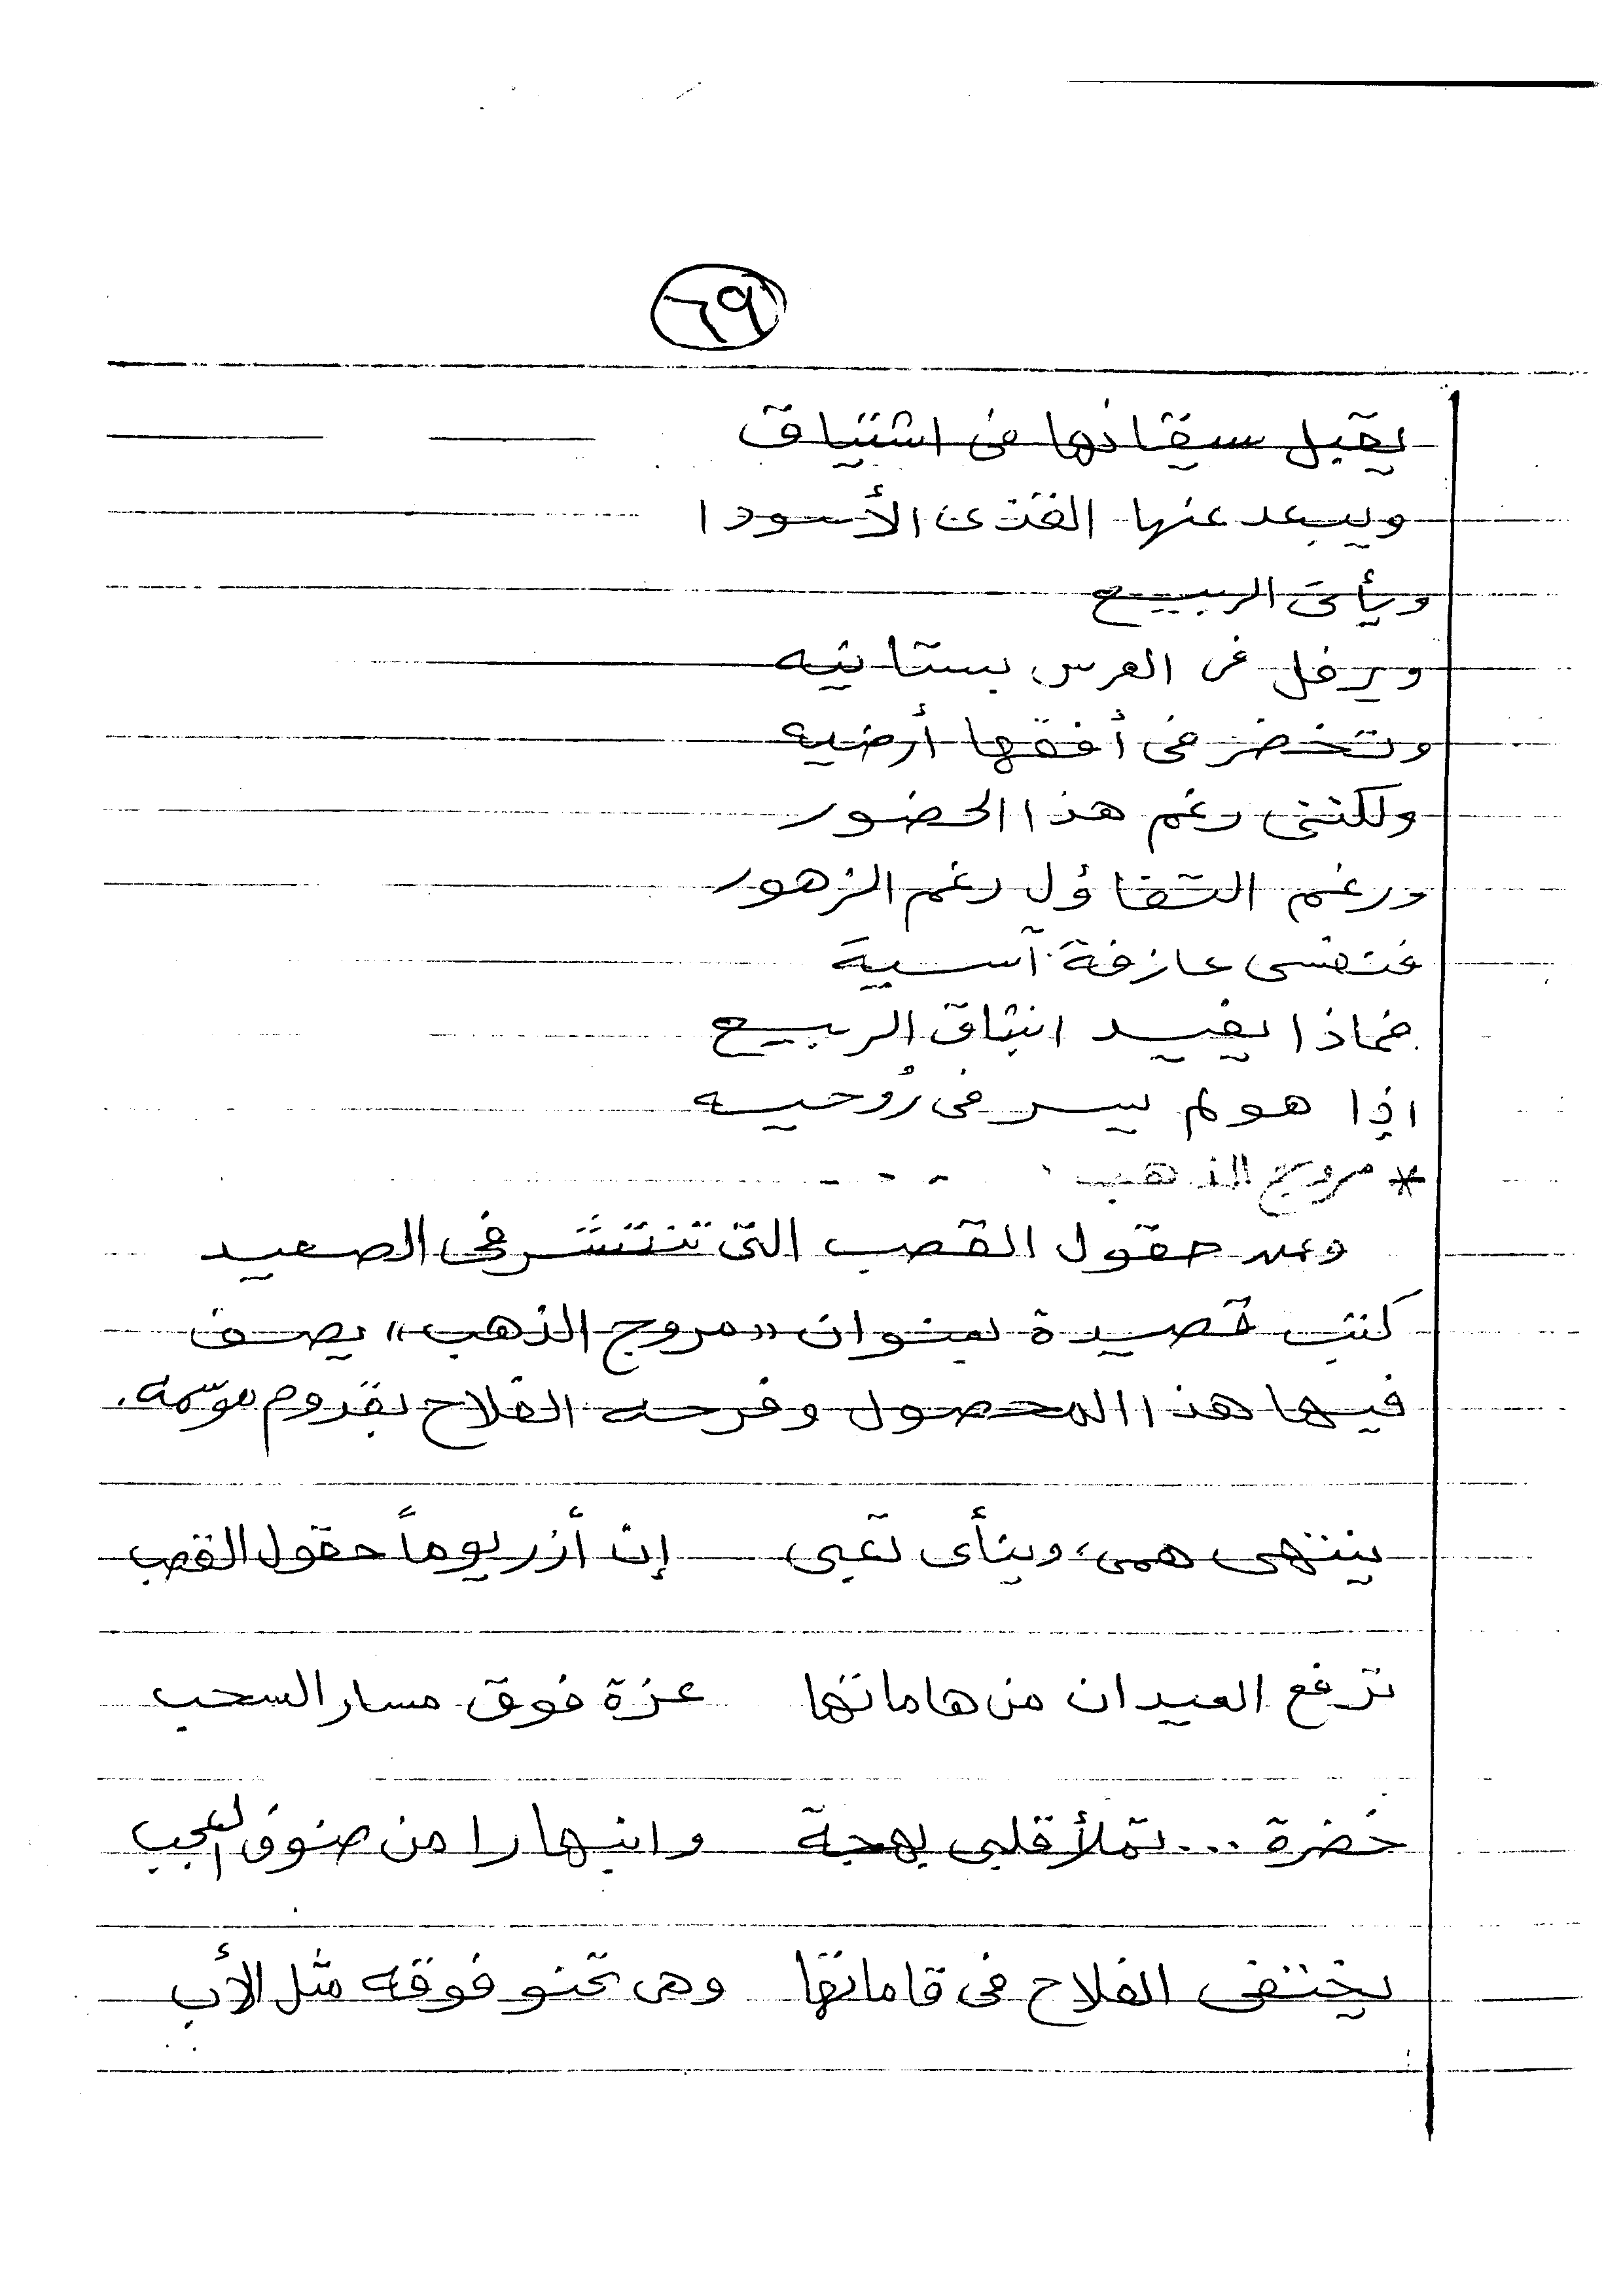 ٦٩
يقبل سيقانها فى اشتياق
ويبعد عنها القذى الأسودا
ويأتى الربيع
ويرفل فى العرس بستانيه
وتخضر فى أفقها أرضيه
ولكننى رغم هذا الحضور
ورغم التفاؤل رغم الزهور
فنفسى عازفة آسية
فماذا يفيد انبثاق الربيع
إذا هو لم يسر فى رُوحيه
* مروج الذهب
وعند حقول القصب التى تنتشر فى الصعيد
كتب قصيدة بعنوان «مروج الذهب» يصف
فيها هذا المحصول وفرحه الفلاح بقدوم موسمه.
ينتهى همى، وينأى تعبى إن أزر يوماً حقول القصب
ترفع العيدان من هاماتها عزة فوق مسار السحب
خضرة ... تملأ قلبى بهجة وانبهارا من صنوف العجب
يختفى الفلاح فى قاماتها وهى تحنو فوقه مثل الأب